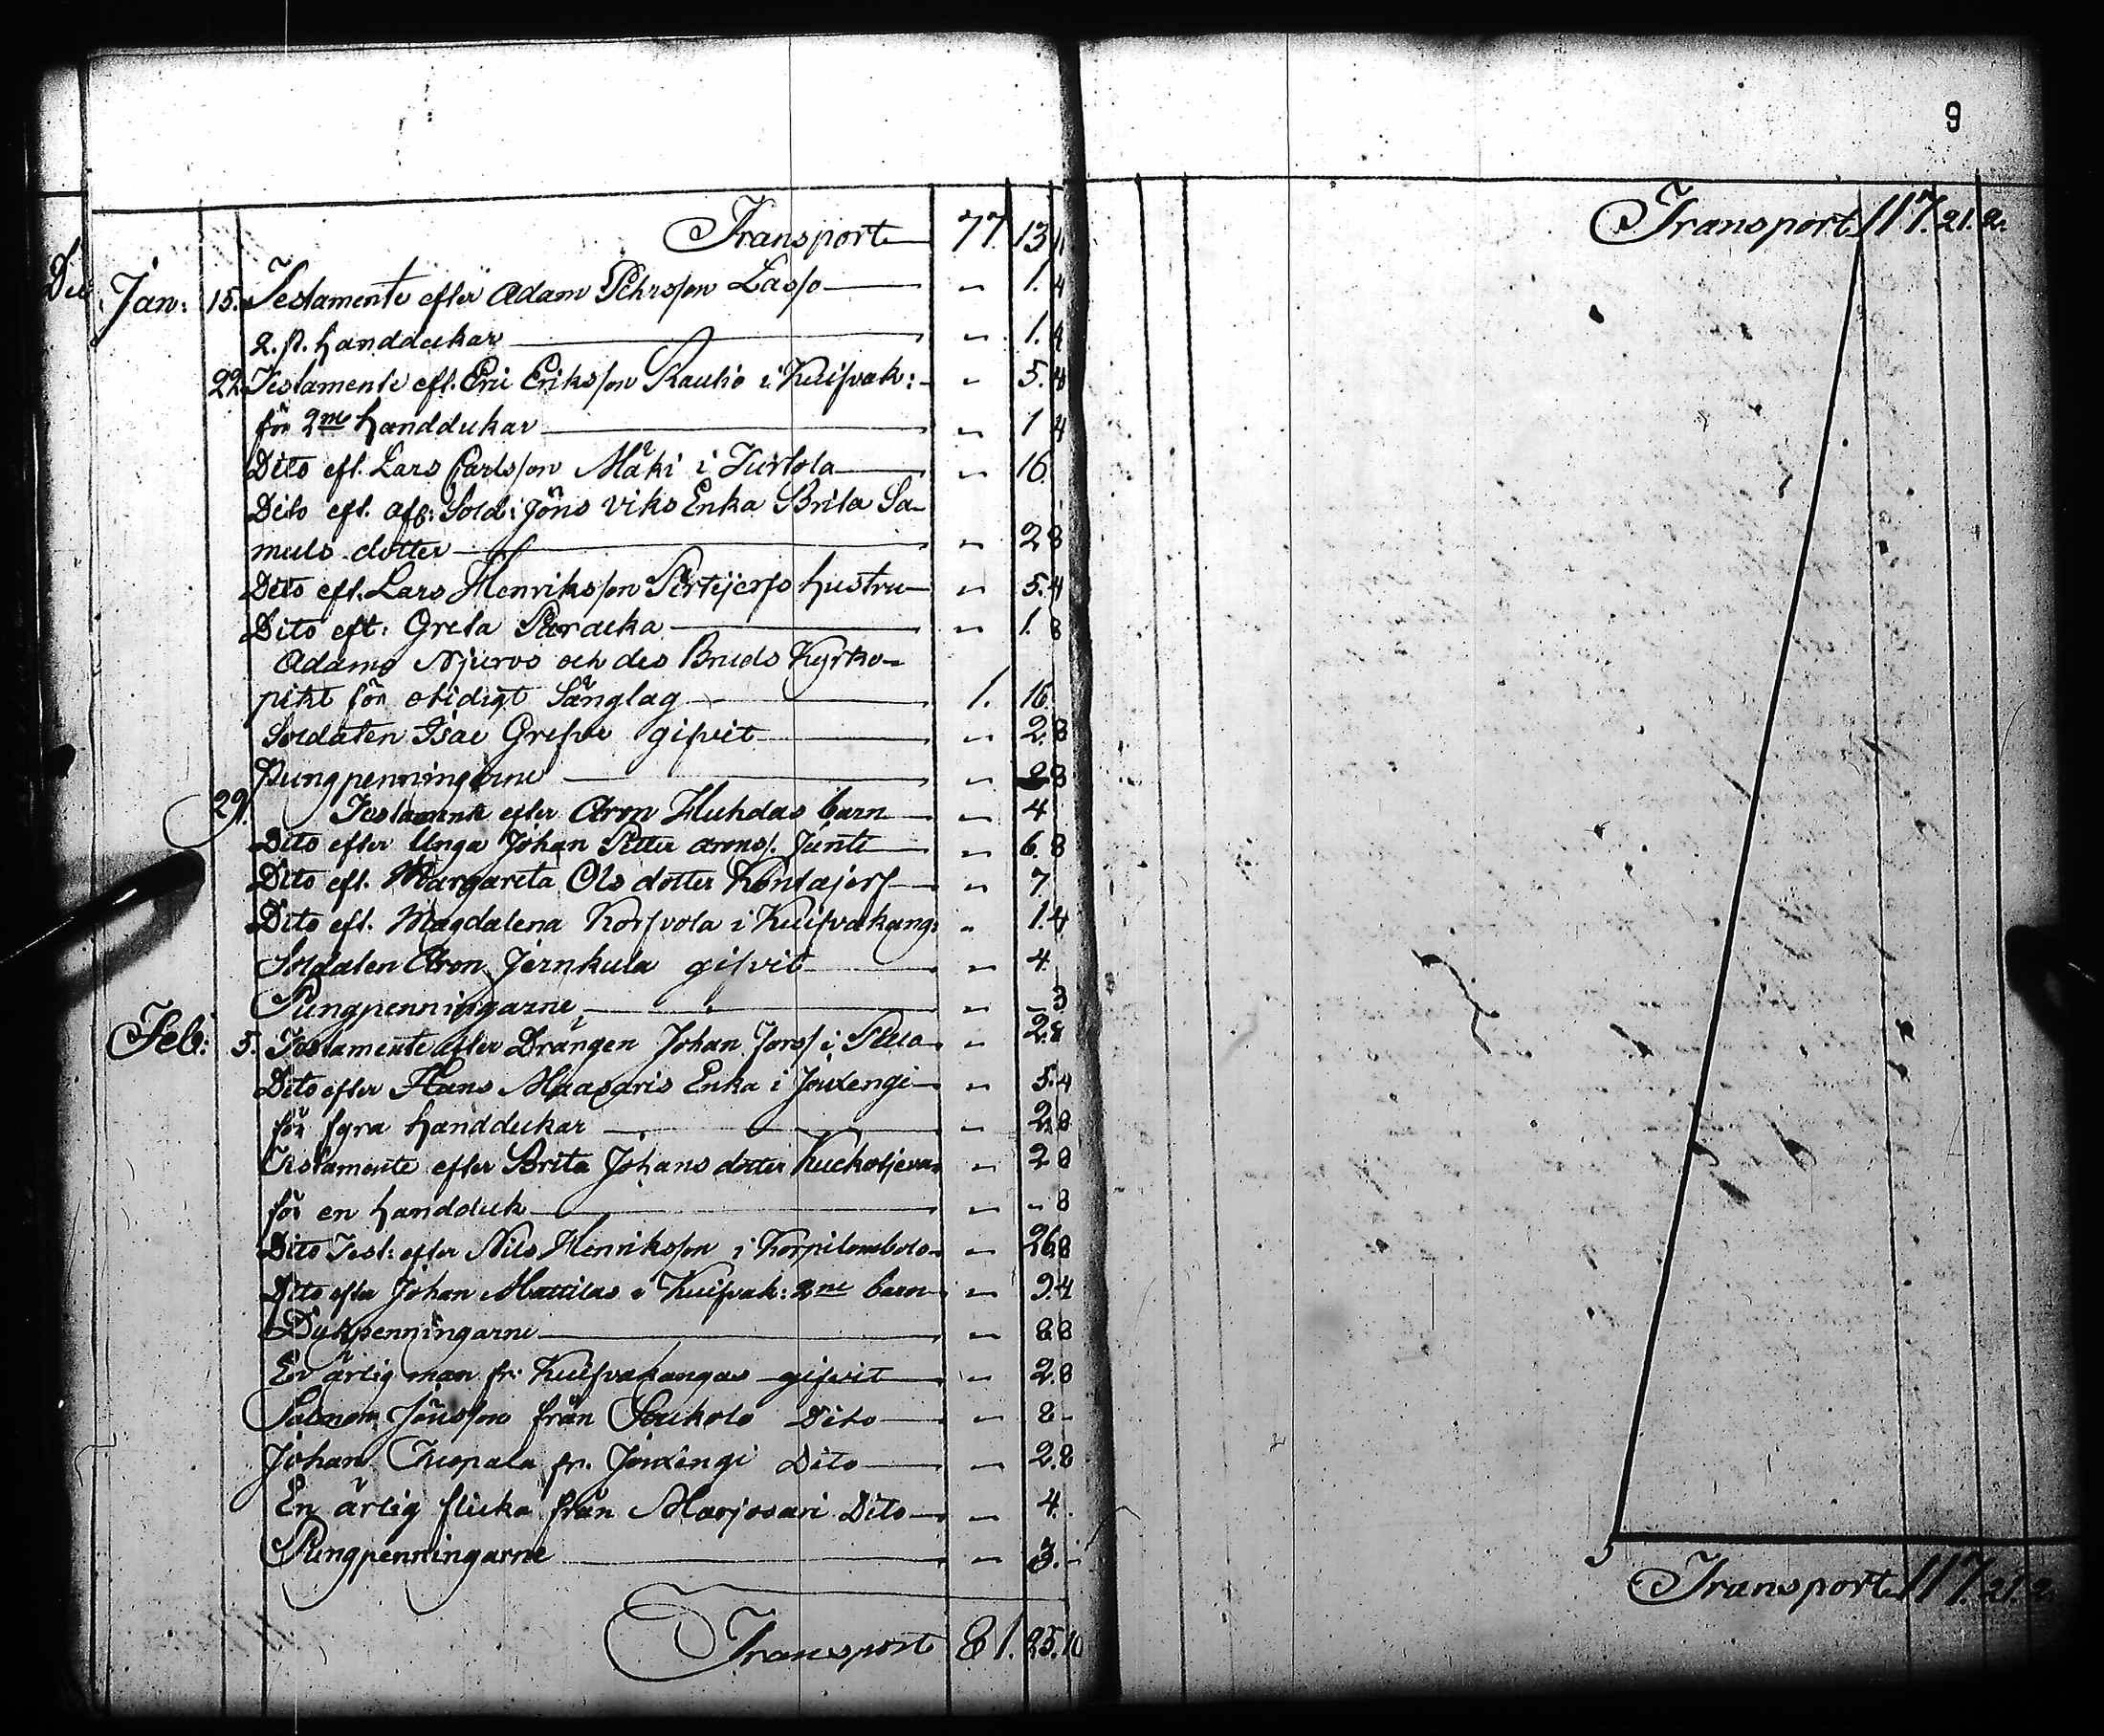 Transport 77. 13
Jan: 15. Testamente efter Adam Pehrsson Lasso - 1. 4
2. st. handdukar - 1. 4
22. Testamente eft. Eric Eriksson Rautio i Kuifvak: - 5. 4
för 2ne handdukar - 1 4
Dito eft. Lars Carlsson Mäki i Turtola - 16.
Dito eft. afs: Sold: Jöns Viks Enka Brita Sa-
muls dotter - 2 8
Dito eft. Lars Henriksson Pertejerfs hustru - 5. 4
Dito eft: Greta - 1. 8
Adams Njuros och des Bruds Kyrko-
pikt för otidigt Sänglag 1. 16.
Soldaten Isac Grefve gifvit - 2. 8
Pungpenningarne - 2 8
29. Testamente efter Aron Huhdas barn - 4
Dito efter Unga Johan Petter Arons. Junti - 6. 8
Dito eft. Margareta Ols dotter Kentajerf - 7
Dito eft. Magdalena Korfvola i Kuifvakang: - 1. 4
Soldaten Aron Jernkula gifvit - 4.
Pungpenningarne - - 3
Feb: 5. Testamente efter Drängen Johan Jorss i - 2. 8
Dito efter Hans Maasaris Enka i Jouxengi - 5. 4
för fyra handdukar - 2. 8
Testamente efter Brita Johans dotter - 2 8
för en handduk - - 8
Dito Test: efter Nils Henriksson i Korpilombolo - 26. 8
Dito efter Johan Mattilas i Kuifvak: 2ne barn - 9 4
Dykpenningarne - 8 8
En ärlig man fr: Kuifvakangas gifvit - 2. 8
Salmom Jönsson från Soukolo Dito - 8 -
Johan Kuopala fr. Jouxengi Dito - 2. 8
En ärlig flicka från Marjosari Dito - 4.
Pungpenningarne - 3. -
Transport 81. 25. 10
9
Transport 117. 21. 2.
Transport 117. 21. 2.